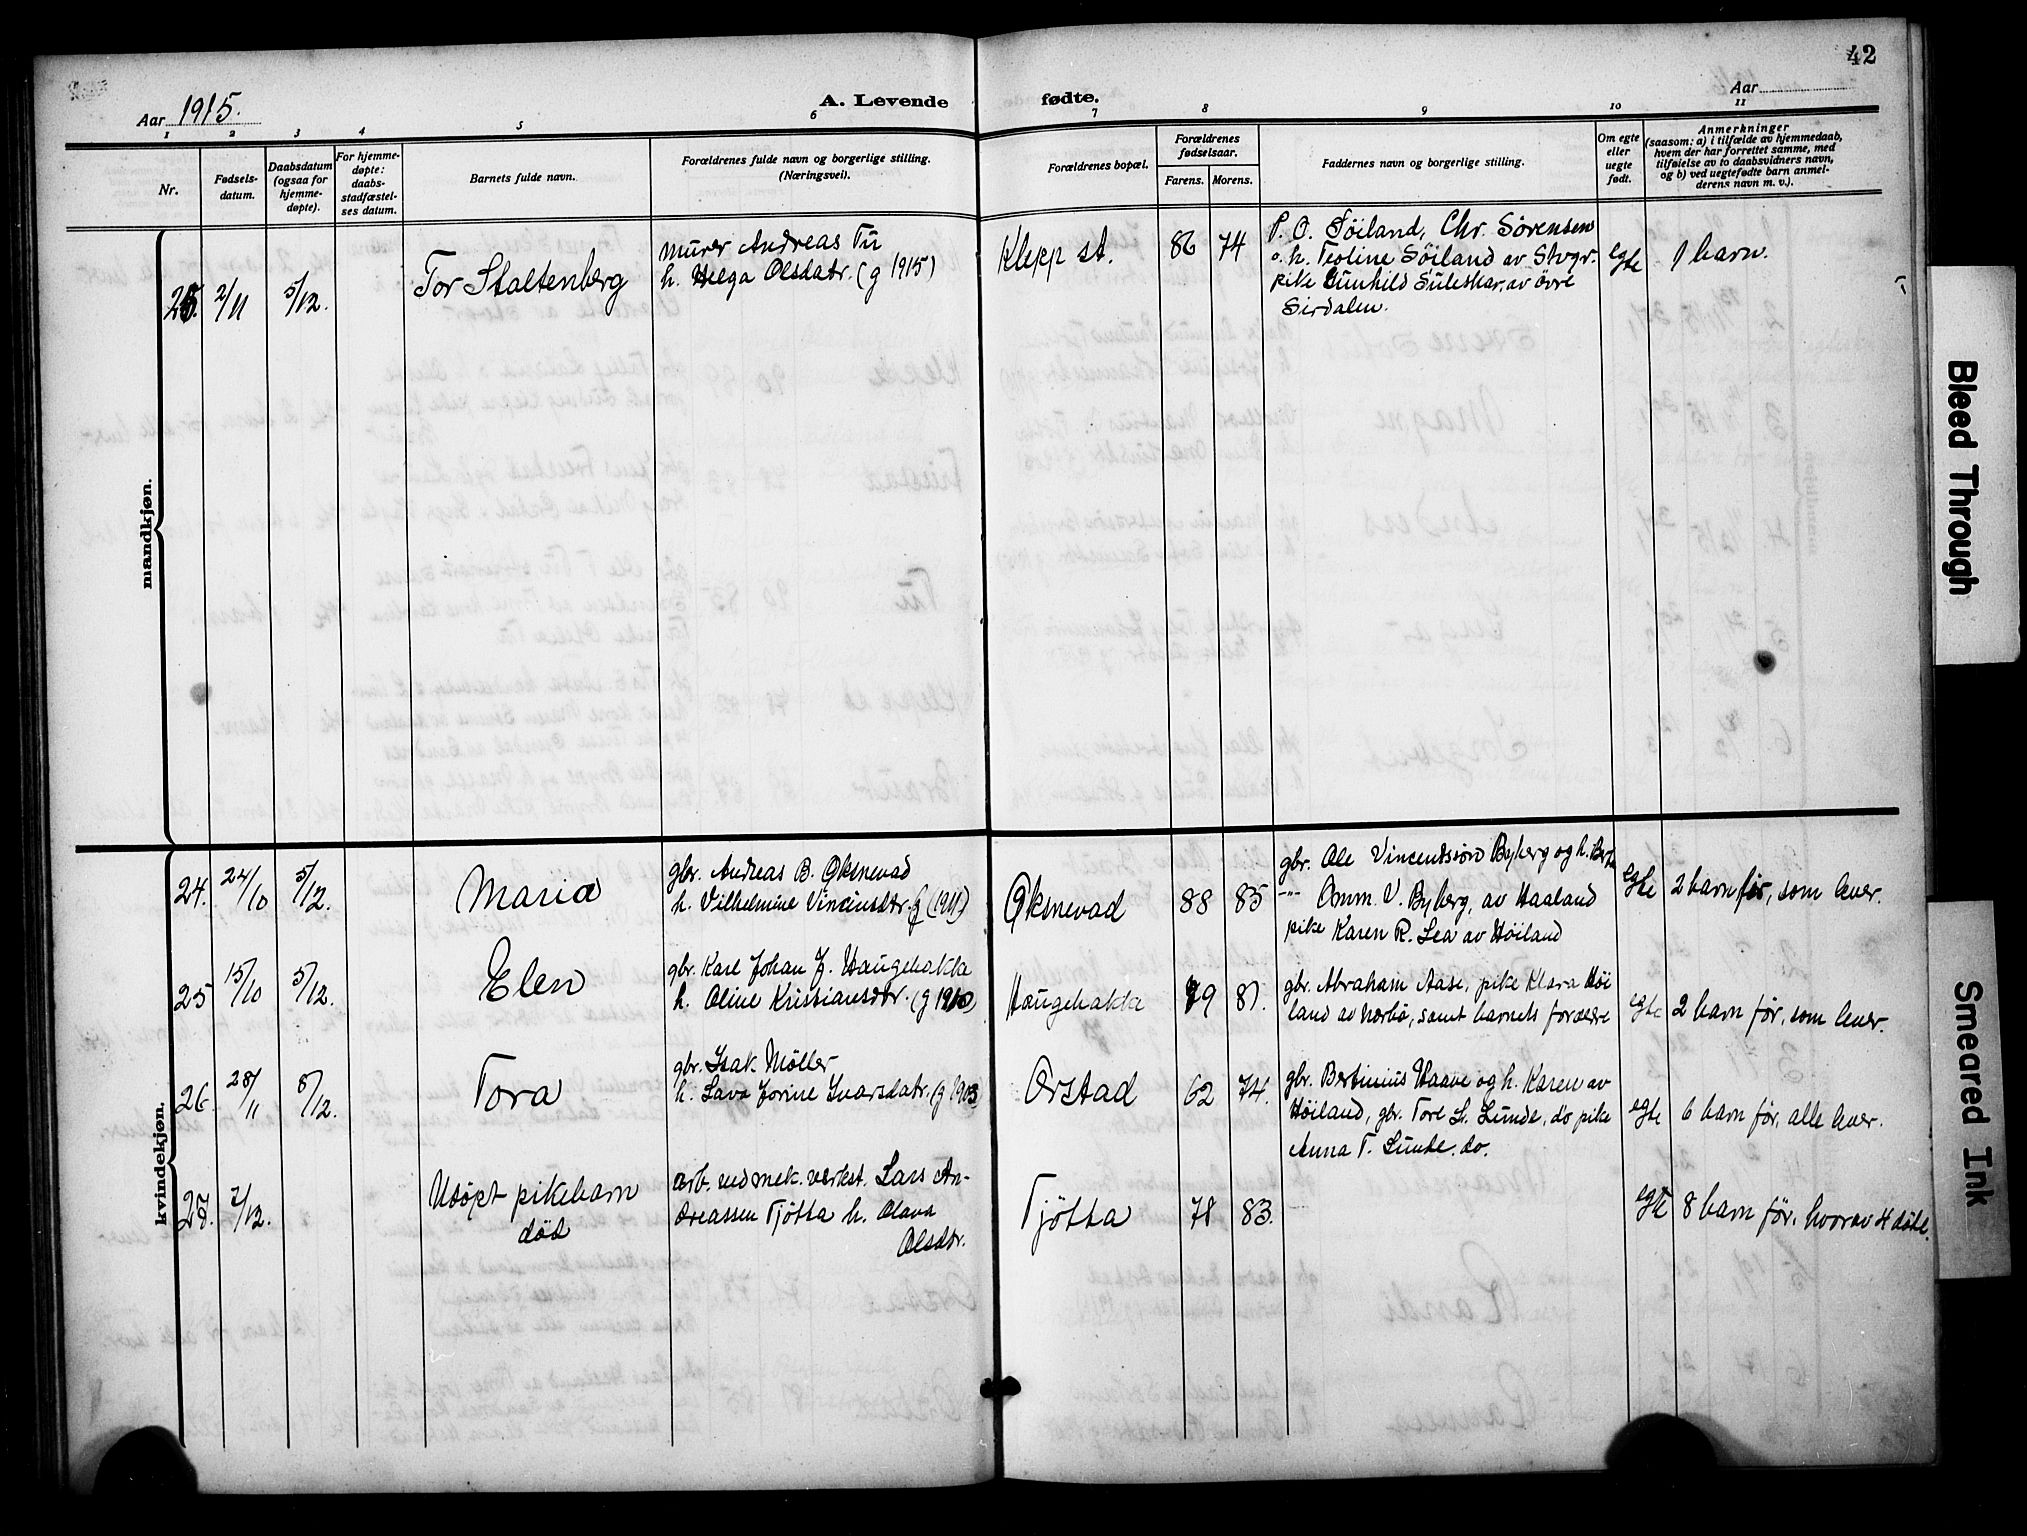 42
Aar 1915.
A. Levende
fødte.
Aar
1 2 3 4 5 6 7 8 9 10 11
Nr.
Fødsels-
datum.
Daabsdatum
(ogsaa for
hjemme-
døpte).
For hjemme-
døpte:
daabs-
stadfæstel-
ses datum.
Barnets fulde navn.
Forældrenes fulde navn og borgerlige stilling.
(Næringsvei).
Forældrenes bopæl.
Forældrenes
fødselsaar.
Farens. Morens.
Faddernes navn og borgerlige stilling.
Om egte
eller
uegte
født.
Anmerkninger
(saasom: a) i tilfælde av hjemmedaab,
hvem der har forrettet samme, med
tilføielse av to daabsvidners navn,
og b) ved uegtefødte barn anmel-
derens navn m. v.).
mandkjøn.
25. 2/11 5/12.
Tor Staltenberg
Murer Andreas Tu
h. Helga Olsdatr. (g 1915)
Klepp st.
86 74
P. O. Söiland, Chr. Sørensen
o. h. Teoline Söiland av Stvgr.
pike Gunhild Suleskar, av övre
Sirdalen.
egte
1 barn.
kvindekjøn.
24. 24/10 5/12.
Maria
gbr. Andreas B. Øksnevad
h. Vilhelmine Vincensdtr. g (1911)
Øksnevad
88 85
gbr. Ole Vincentssøn Byberg og h. Berta
-"- Omm. V. Byberg, av Haaland
pike Karen R. Lea av Höiland
egte
2 barn før, som lever.
25 15/10 5/12.
Elen
gbr. Karl Johan J. Haugebakka
h. Oline Kristiansdtr. (g 1910)
Haugebakka
79 81.
gbr. Abraham Aase, pike Klara Höi
land av Nærbø, samt barnets forældre
egte
2 barn før, som lever.
26. 28/11 8/12.
Tora
gbr. Isak Møller
h. Lava Jorine Ivarsdatr. (g 1903)
Orstad
62 74.
gbr. Bertinius Haave og h. Karen av
Höiland, gbr. Tore St. Lunde, do pike
Anna T. Lunde. do.
egte
6 barn før, alle lever.
27. 7/12.
Udøpt pikebarn
död
arb. ved mek. verkst. Lars An-
dreassen Tjötta h. Olava
Olsdtr.
Tjötta
78 83.
egte
8 barn før, hvorav 4 døde.
Bleed Through
Smeared Ink